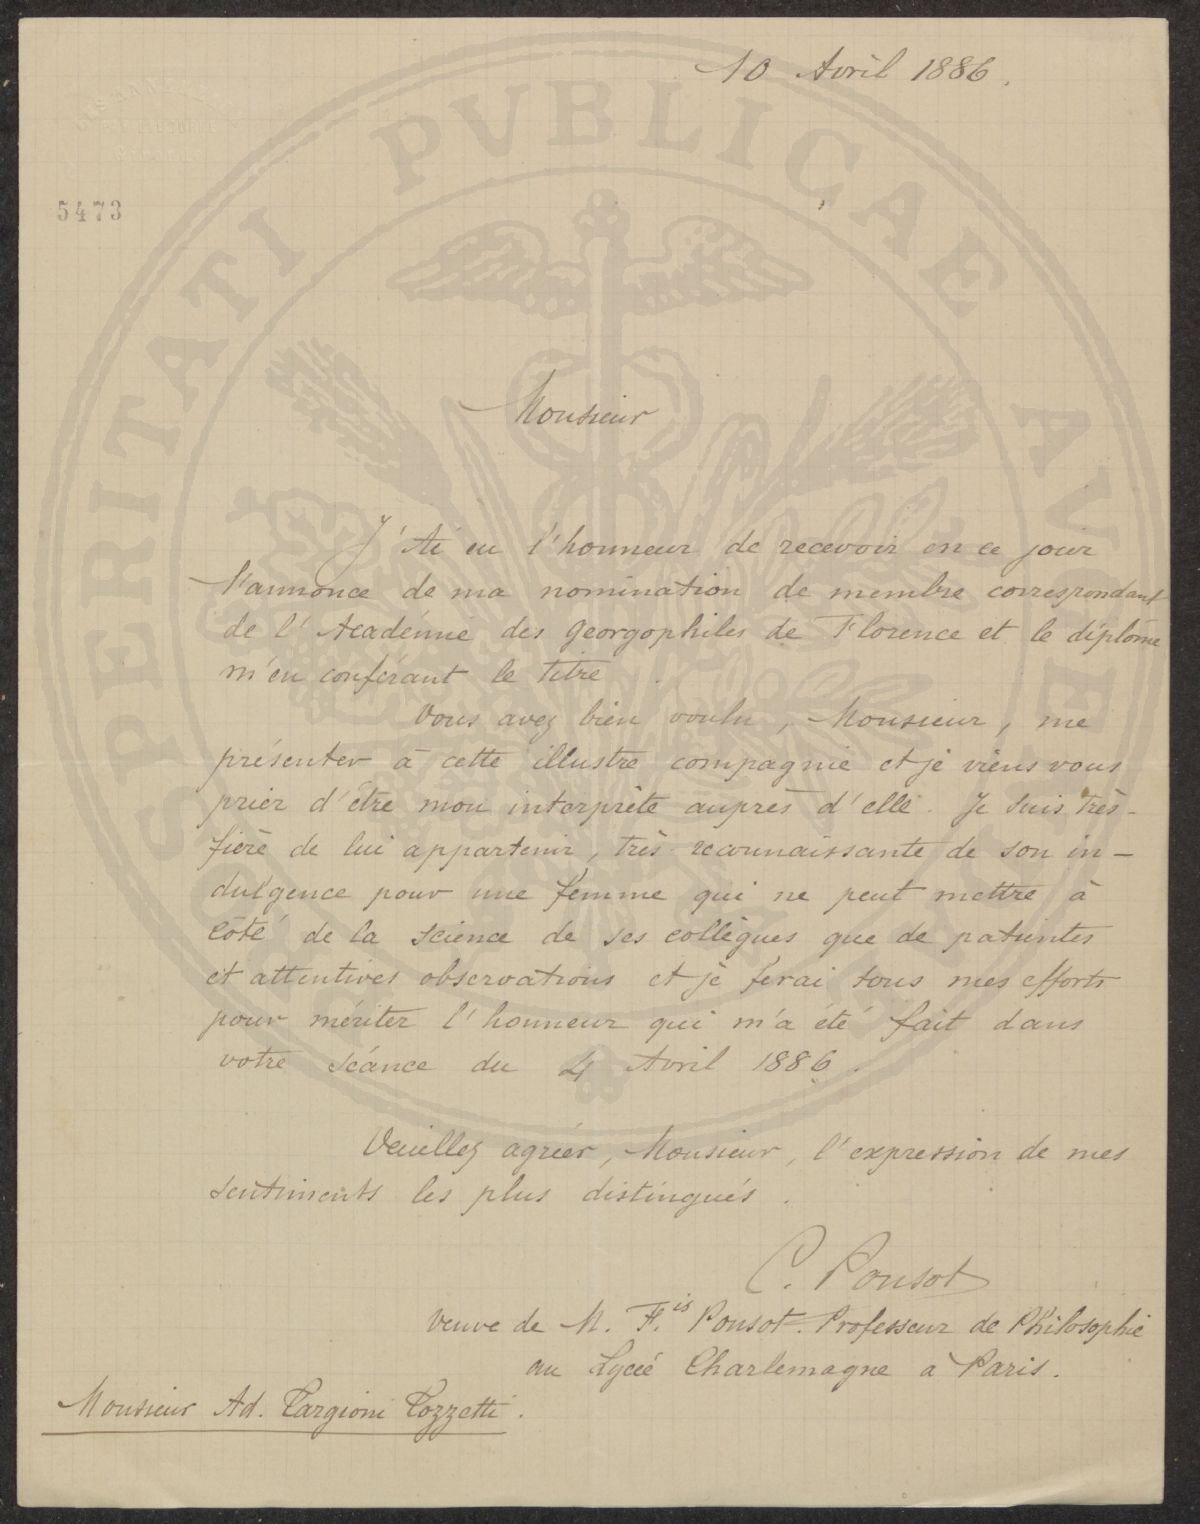 10 Avril 1886.
5473
PROSPERITATI PUBLICAE AUGENDAE
Monsieur
J'Ai eu l'honneur de recevoir en ce jour
l'annonce de ma nomination de membre correspondant
de l'Académie des Georgophiles de Florence et le diplôme
m'en conférant le titre
Vous avez bien voulu, Monsieur, me
présenter à cette illustre compagnie et je viens vous
prier d'être mon interprète auprès d'elle. Je suis très-
fière de lui appartenir, très reconnaissante de son in-
dulgence pour une femme qui ne peut mettre à
côté de la science de ses collègues que de patientes
et attentives observations et je ferai tous mes efforts
pour mériter l'honneur qui m'a été fait dans
votre séance du 4 Avril 1886.
Veuillez agréer, Monsieur, l'expression de mes
sentiments les plus distingués.
C. Ponsot
veuve de M. F.is Ponsot. Professeur de Philosophie
au Lycée Charlemagne à Paris.
Monsieur Ad. Targioni Tozzetti.